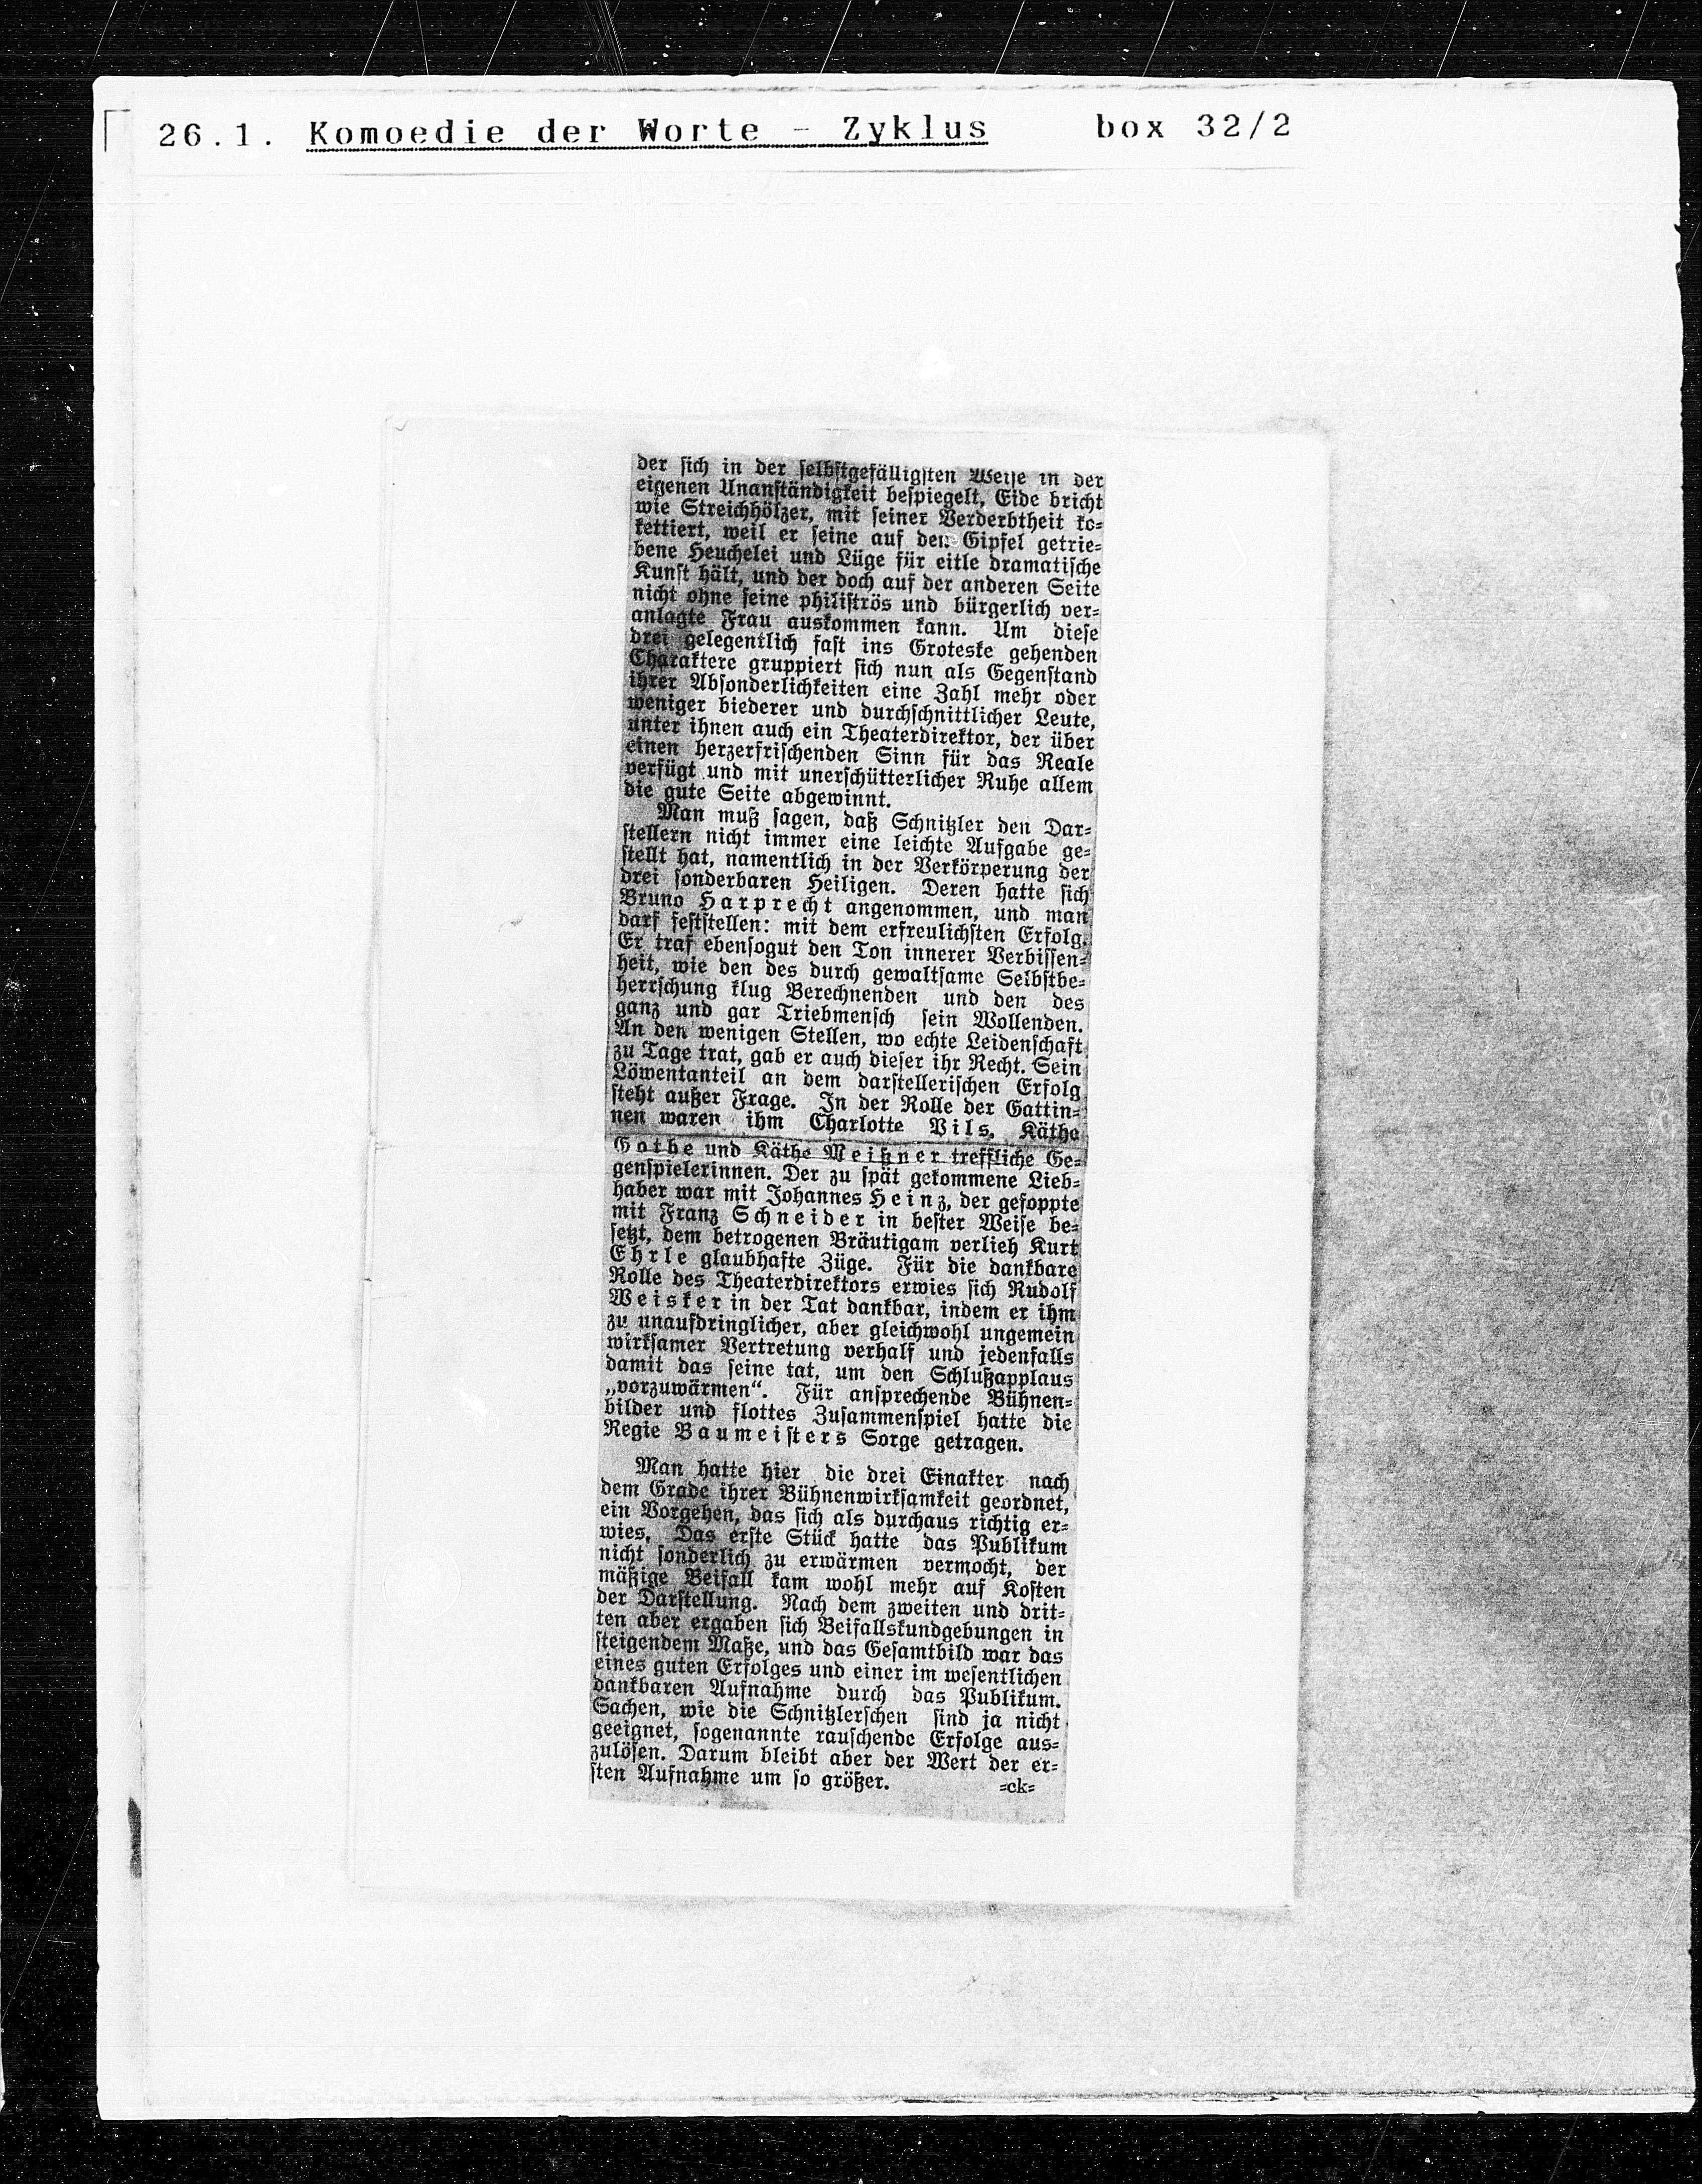 26.1. Komoedie der Worte - Zyklus box 32/2
der sich in der selbstgefälligsten Weise in der
eigenen Unanständigkeit bespiegelt, Eide bricht
wie Streichhölzer, mit seiner Verderbtheit ko-
kettiert, weil er seine auf den Gipfel getrie-
bene Heuchelei und Lüge für eitle dramatische
Kunst hält, und der doch auf der anderen Seite
nicht ohne seine philiströs und bürgerlich ver-
anlagte Frau auskommen kann. Um diese
drei gelegentlich fast ins Groteske gehenden
Charaktere gruppiert sich nun als Gegenstand
ihrer Absonderlichkeiten eine Zahl mehr oder
weniger biederer und durchschnittlicher Leute,
unter ihnen auch ein Theaterdirektor, der über
einen herzerfrischenden Sinn für das Reale
verfügt und mit unerschütterlicher Ruhe allem
die gute Seite abgewinnt.
Man muß sagen, daß Schnitzler den Dar-
stellern nicht immer eine leichte Aufgabe ge-
stellt hat, namentlich in der Verkörperung der
drei sonderbaren Heiligen. Deren hatte sich
Bruno Harprecht angenommen, und man
darf feststellen: mit dem erfreulichsten Erfolg.
Er traf ebensogut den Ton innerer Verbissen-
heit, wie den des durch gewaltsame Selbstbe-
herrschung klug Berechnenden und den des
ganz und gar Triebmensch sein Wollenden.
An den wenigen Stellen, wo echte Leidenschaft
zu Tage trat, gab er auch dieser ihr Recht. Sein
Löwentanteil an dem darstellerischen Erfolg
steht außer Frage. In der Rolle der Gattin-
nen waren ihm Charlotte Pils, Käthe
Gothe und Käthe Meißner treffliche Ge-
genspielerinnen. Der zu spät gekommene Lieb-
haber war mit Johannes Heinz, der gefoppte
mit Franz Schneider in bester Weise be-
setzt, dem betrogenen Bräutigam verlieh Kurt
Ehrle glaubhafte Züge. Für die dankbare
Rolle des Theaterdirektors erwies sich Rudolf
Weisker in der Tat dankbar, indem er ihm
zu unaufdringlicher, aber gleichwohl ungemein
wirksamer Vertretung verhalf und jedenfalls
damit das seine tat, um den Schlußapplaus
„vorzuwärmen“. Für ansprechende Bühnen-
bilder und flottes Zusammenspiel hatte die
Regie Baumeisters Sorge getragen.
Man hatte hier die drei Einakter nach
dem Grade ihrer Bühnenwirksamkeit geordnet,
ein Vorgehen, das sich als durchaus richtig er-
wies. Das erste Stück hatte das Publikum
nicht sonderlich zu erwärmen vermocht, der
mäßige Beifall kam wohl mehr auf Kosten
der Darstellung. Nach dem zweiten und drit-
ten aber ergaben sich Beifallskundgebungen in
steigendem Maße, und das Gesamtbild war das
eines guten Erfolges und einer im wesentlichen
dankbaren Aufnahme durch das Publikum.
Sachen, wie die Schnitzlerschen sind ja nicht
geeignet, sogenannte rauschende Erfolge aus-
zulösen. Darum bleibt aber der Wert der er-
sten Aufnahme um so größer. =ck=